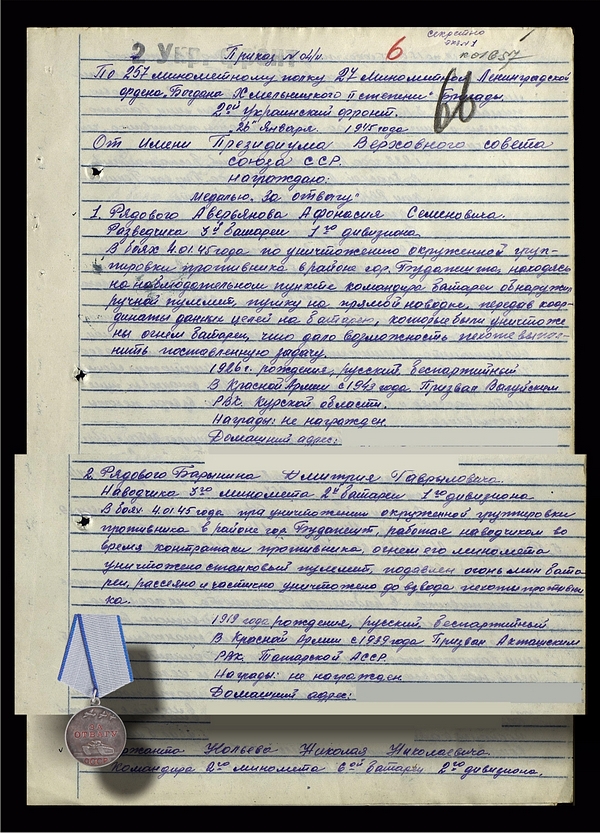 секретно
экз. №1
Приказ № 04/н
6
66
По 257 миномётному полку 27 Миномётной Ленинградской
ордена "Богдана Хмельницкого II степени" бригады.
2ой Украинский фронт.
"26" января 1945 года
От имени Президиума Верховного совета
союза ССР.
награждаю:
медалью "За отвагу"
1. Рядового Аверьянова Афонасия Семеновича.
Разведчика 3ей батареи 1го дивизиона.
В боях 4.01.45 года по уничтожению окруженной груп-
пировки противника в районе гор. Будапешта, находясь
на наблюдательном пункте командира батареи обнаружил
ручной пулемет, пушку на прямой наводке, передав коор-
динаты данных целей на батарею, которые были уничтоже
ны огнем батареи, что дало возможность пехоте выпол-
нить поставленную задачу.
1926 г. рождение, русский, беспартийный
В Красной Армии с 1943 года. Призван Валуйским
РВК. Курской области.
Награды: не награжден
Домашний адрес:
2. Рядового Барынина Дмитрия Гавриловича.
Наводчика 3го миномета 2ой батареи 1го дивизиона
В боях 4.01.45 года при уничтожении окруженной группировки
противника в районе гор. Будапешт, работая наводчиком во
время контратаки противника, огнем его миномета
уничтожено станковый пулемет, подавлен огонь мин бата
реи, рассеяно и частично уничтожено до взвода пехоты противни
ка.
1919 года рождения, русский беспартийный
В Красной Армии с 1939 года Призван Акташским
РВК. Татарской АССР.
Награды: не награжден
Домашний адрес:
Николая Николаевича.
Командира 2го миномета 6ой батареи 2го дивизиона.
ЗА
ОТВАГУ
СССР